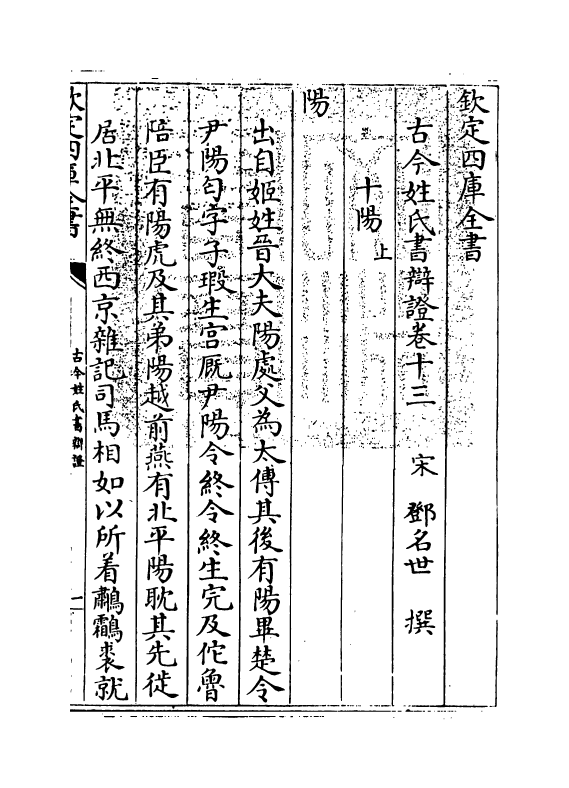 欽定四庫全書
古今姓氏書辯證卷十三　宋　鄧名世　撰
十陽上
陽
出自姬姓晉大夫陽處父為太傅其後有陽畢楚令
尹陽匄字子瑕生宫厩尹陽令終令終生完及佗魯
陪臣有陽虎及其弟陽越前燕有北平陽耽其先徙
居北平無終西京雜記司馬相如以所着鷫鸘裘就
欽定四庫全書
古今姓氏書辯證
一